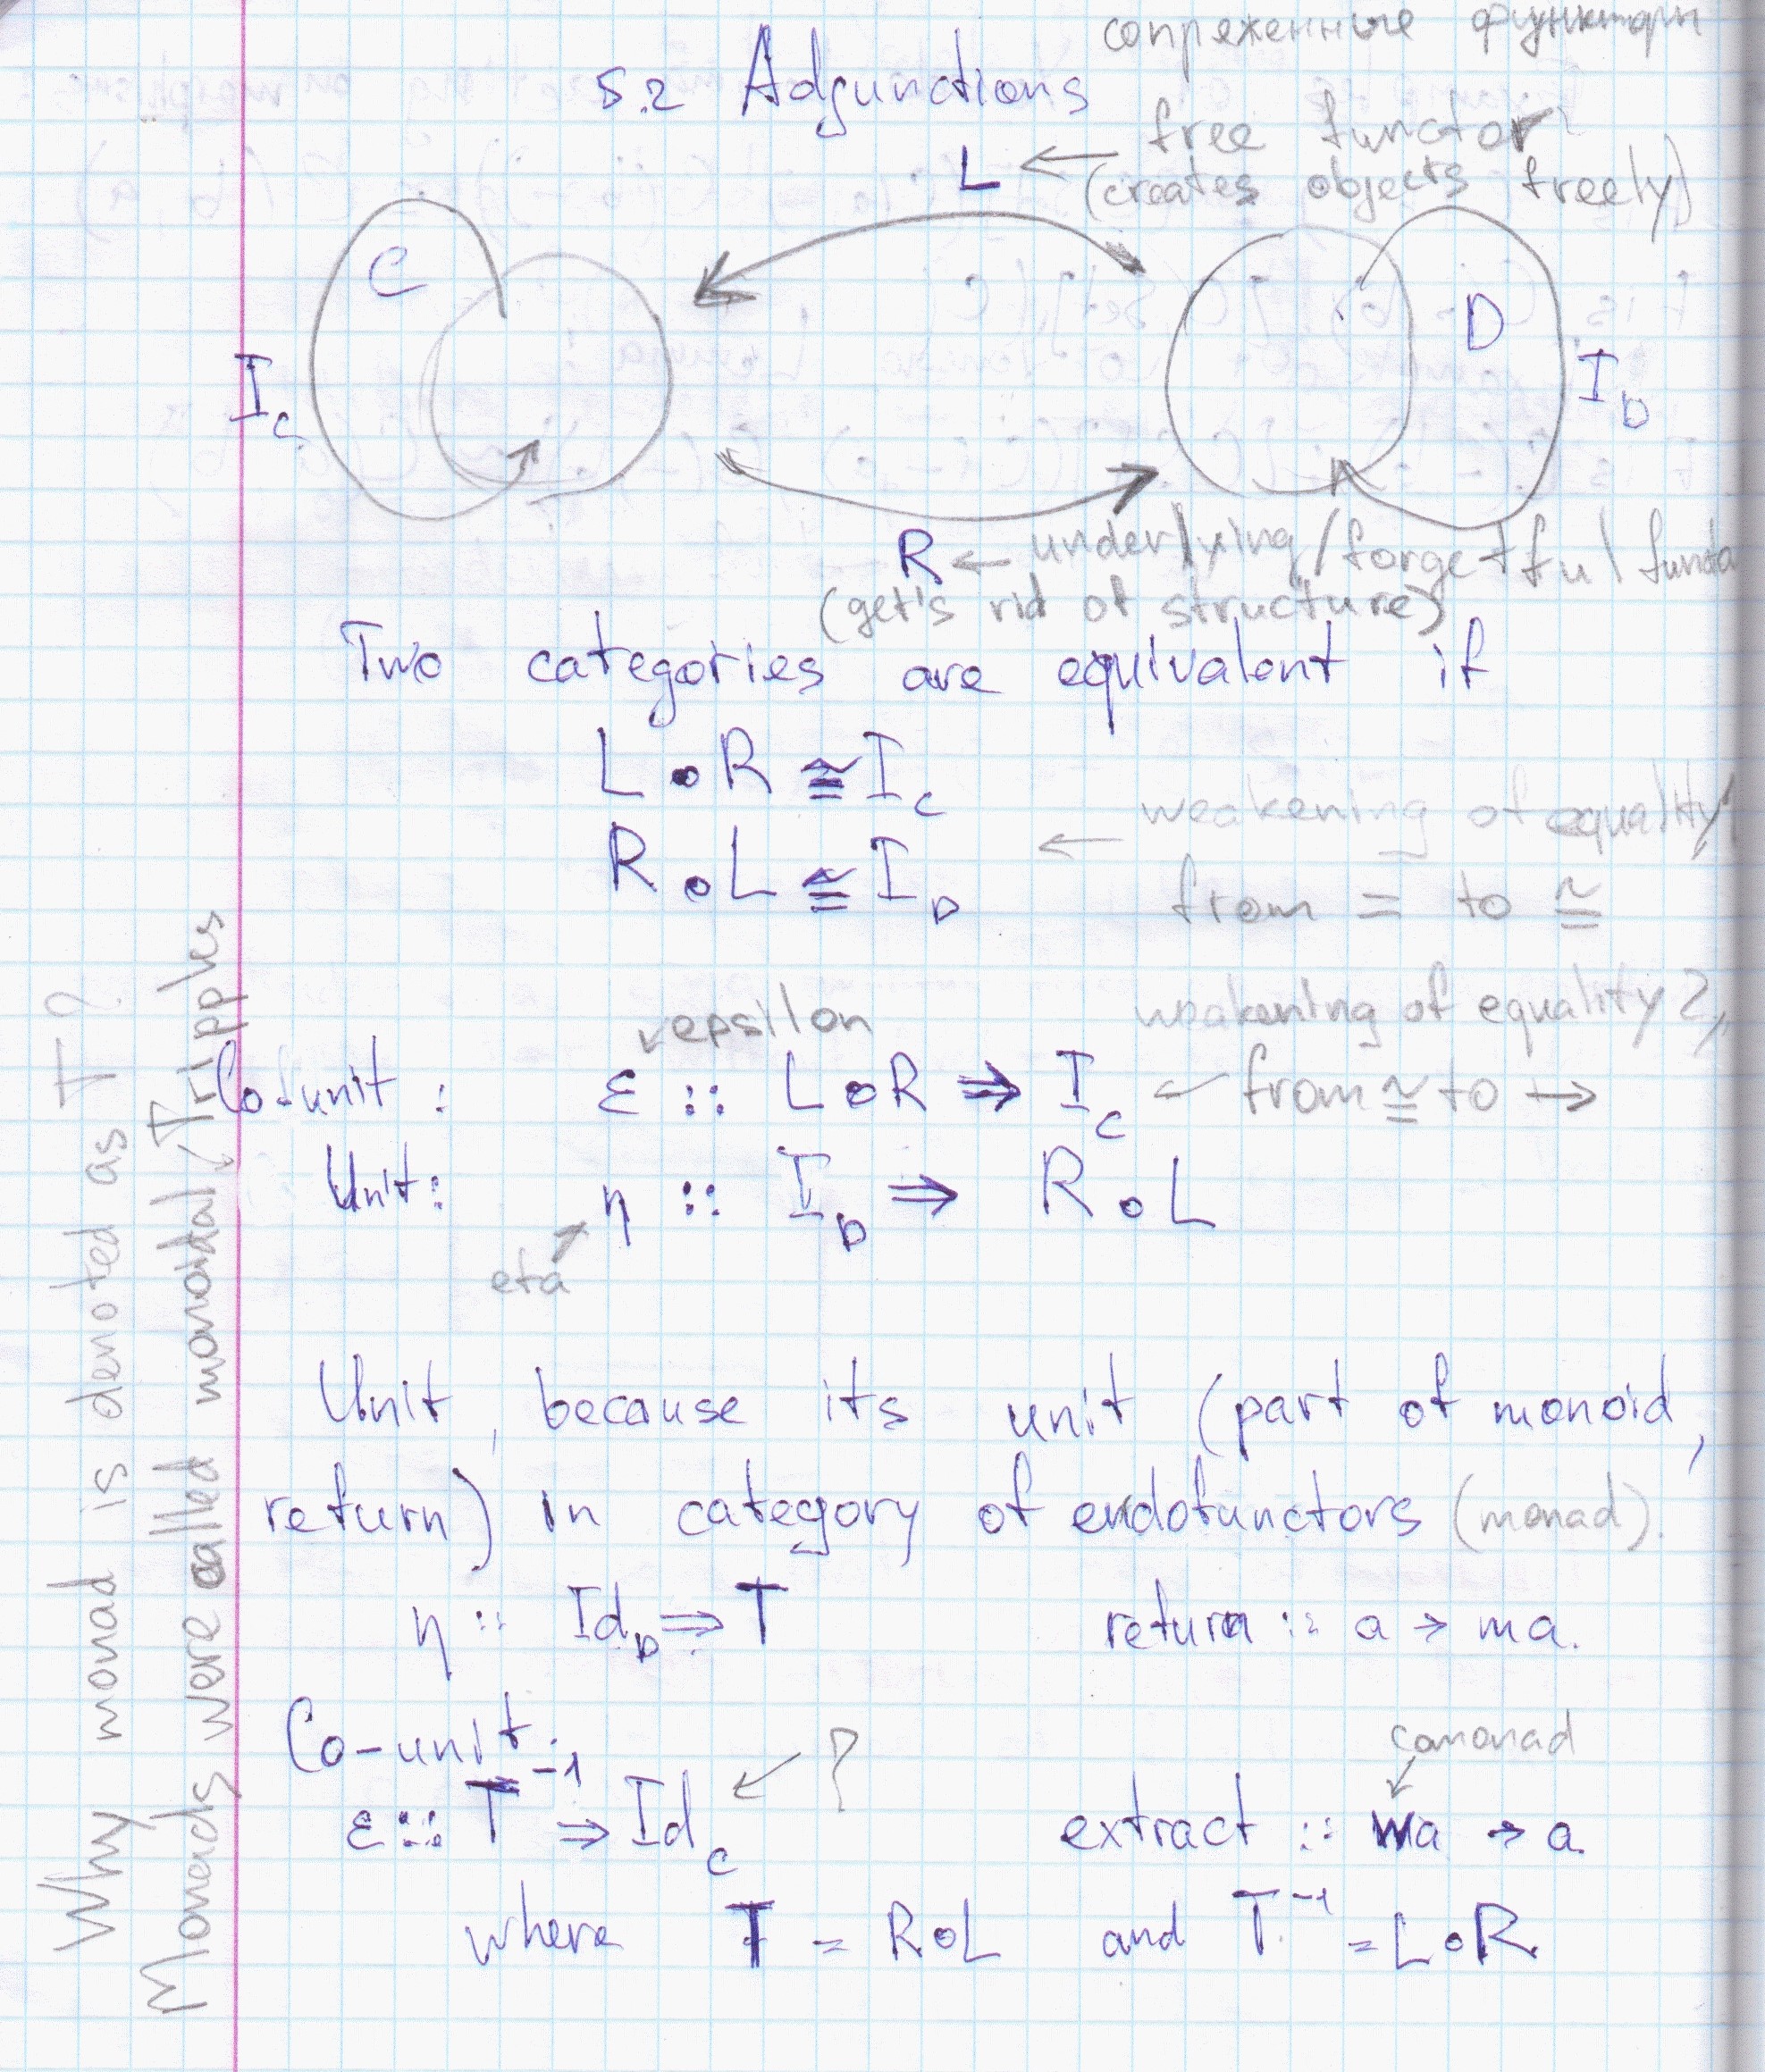 сопреженные функторы
5.2 Adjunctions
L ← free functor
(creates objects freely)
C
D
I_C
I_D
R ← underlying/forgetful
(get's rid of structure)
Two categories are equivalent if
L ∘ R ≅ I_C
R ∘ L ≅ I_D
weakening of equality 1
← from = to ≅
epsilon
weakening of equality 2,
Co-unit : ε :: L∘R ⇒ I_C ← from ≅ to →
Unit: η :: I_D ⇒ R ∘ L
eta
Unit, because its unit (part of monoid,
return) in category of endofunctors (monad).
η :: Id_D ⇒ T return :: a → ma.
Co-unit:
ε :: T^-1 ⇒ Id_C ← ? extract :: wa → a.
comonad
where T = R∘L and T^-1 = L∘R.
Why monad is denoted as T?
Monads were called monoidal Tripples